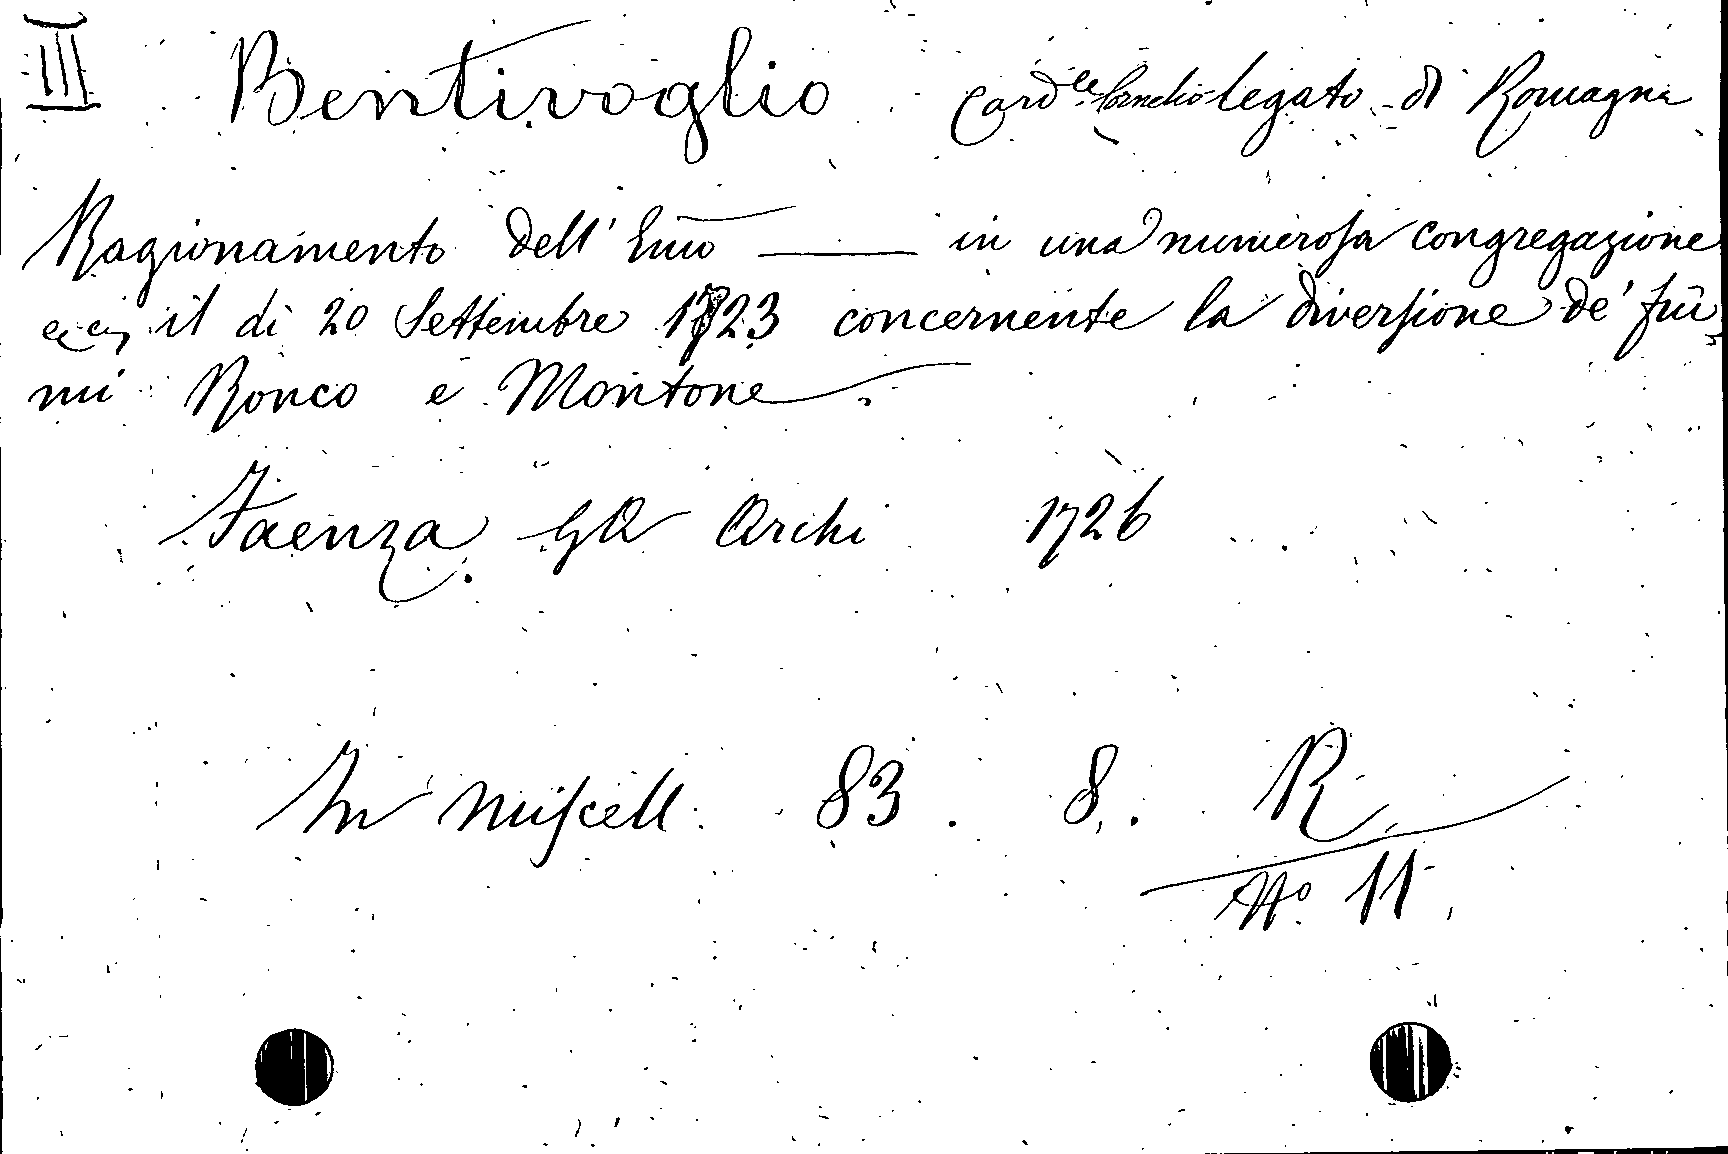 III Bentivoglio Card.le Cornelio legato di Romagna
Ragionamento dell' Emo —— in una numerosa congregazione
il di 20 Settembre 1723 concernente la diversione de' fiu
mi Ronco e Montone.
Faenza. GA Archi 1726
In Miscell. 83. 8. R
No 11.